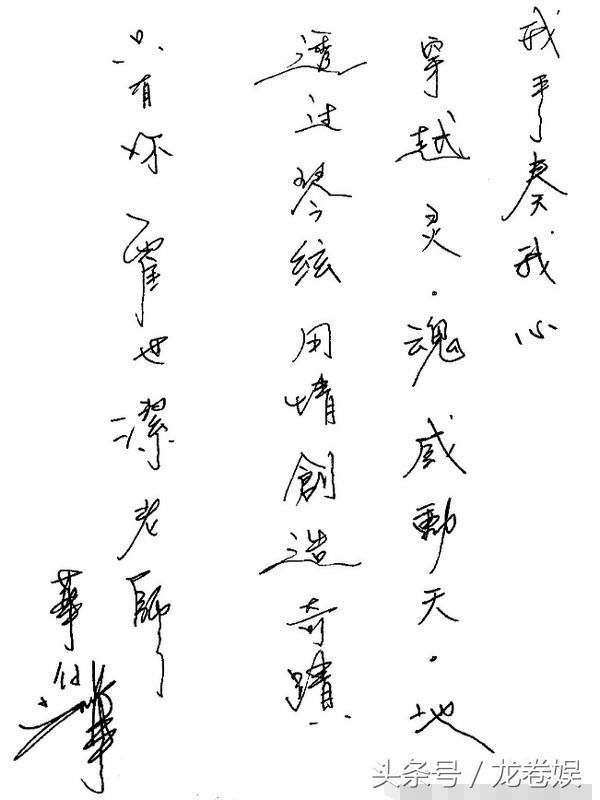 我手奏我心
穿越灵.魂感動天.地
透过琴絃用情創造奇蹟
只有你霍世潔老師
華仔
头条号 / 龙卷娱